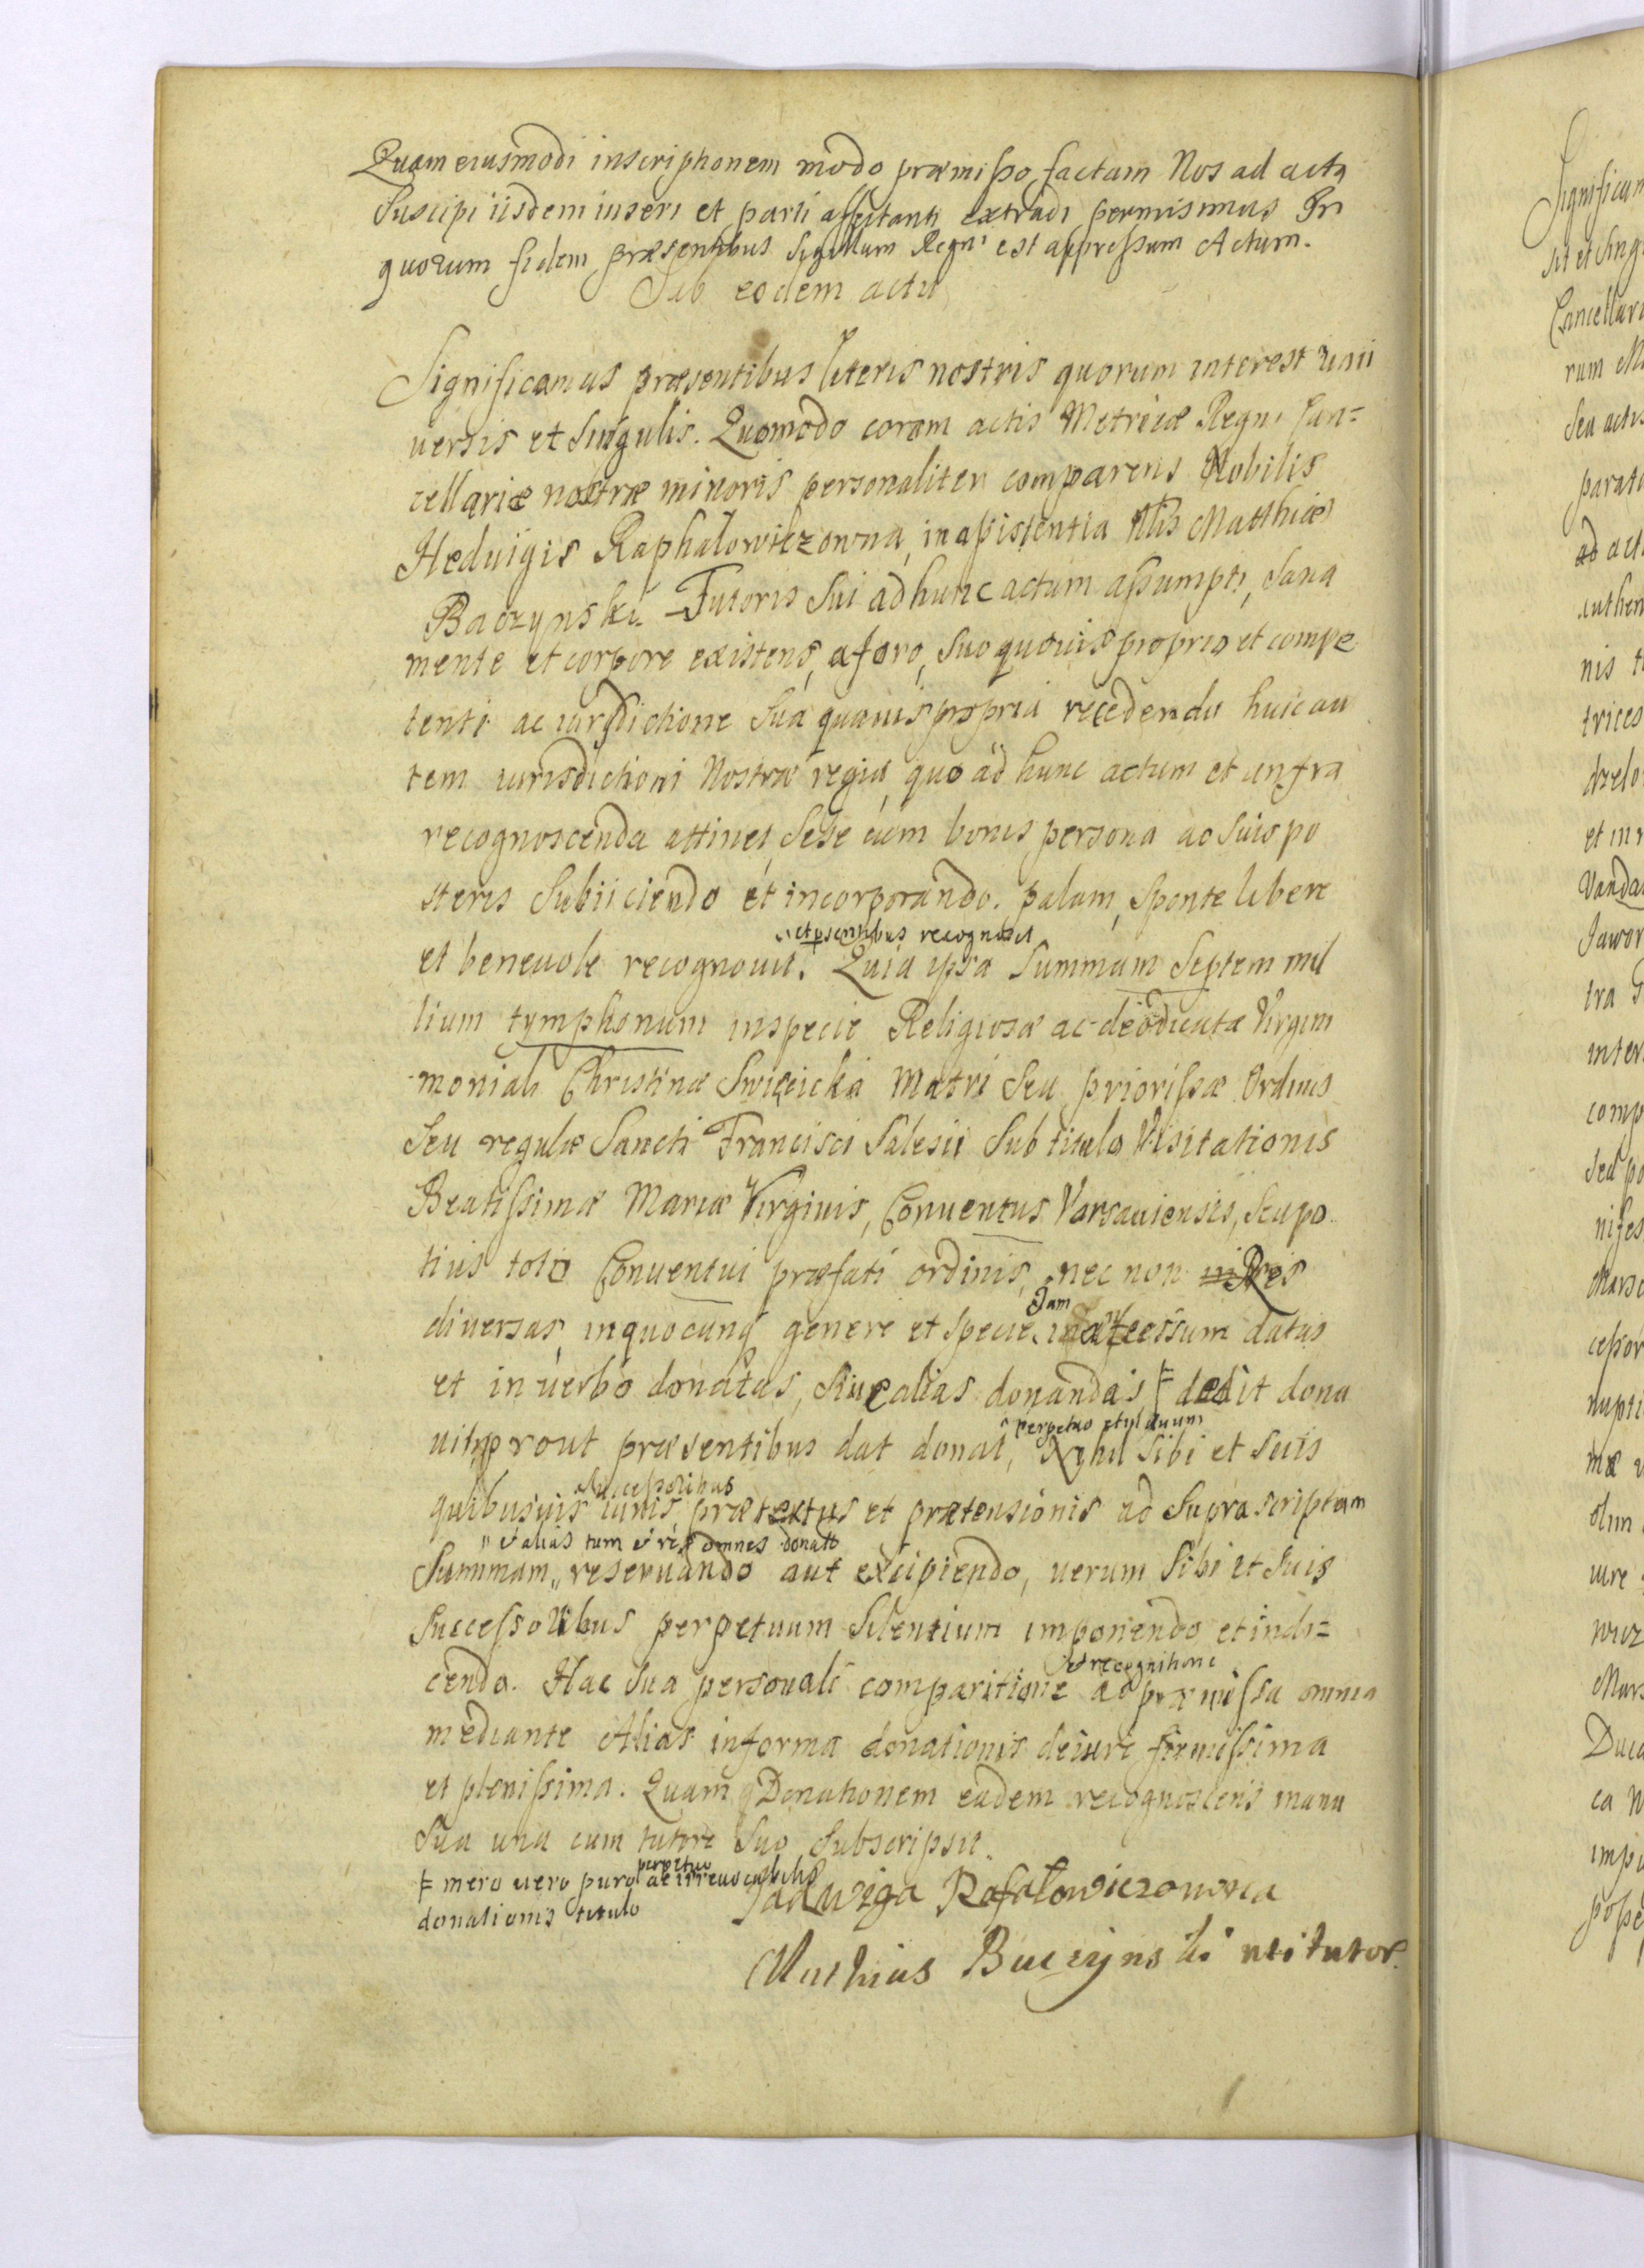 Quam eiusmodi inscriptionem modo præmisso factam Nos ad acta
Suscipi iisdem inseri et parti affectanti extradi permisimus In
quorum fidem præsentibus Sigillum Regni est appressum Actum.
Sub eodem actu
Significamus præsentibus literis nostris quorum interest uni
uersis et Singulis. Quomodo coram actis Metricæ Regni Can=
cellariæ nostræ minoris personaliter comparens Nobilis
Heduigis Raphalowiczowna, in assistentia Nlis Matthiæ
Baczynski Tutoris Sui ad hunc actum assumpti, Sana
mente et corpore existens, a foro, Suo quouis proprio et compe
tenti ac iurisdictione Sua quauis propria recedendu huic au
tem iurisdictioni Nostræ regiæ quo ad hunc actum et infra
recognoscenda attinet, Sese cum bonis persona ac Suis po
steris Subiiciendo et incorporando. palam, Sponte libere
et præsentibus recognoscit
et beneuole recognouit. Quia ipsa Summam Septem mil
lium tymphonum in specie Religiosæ ac deodicatæ Virgini
moniali Christinæ Swięcicka Matri Seu priorissæ Ordinis
Seu regulæ Sancti Francisci Salesii Sub titulo Visitationis
Beatissimæ Mariæ Virginis, Conuentus Varsauiensis, Seu po
tius toto Conuentui præfati ordinis, nec non Res
Jam
diuersas, in quocunq genere et specie, in datus
et in uerbo donatas, Siue alias donandas ⊧ dedit dona
perpetuo et
uitq prout præsentibus dat donat, Nihil Sibi et Suis
Successoribus
quibusuis iuris prætextus et prætensionis ad Suprascriptam
" alias tum res omnes donatas
Summam " reseruando aut excipiendo, uerum Sibi et Suis
Successoribus perpetuum Silentium imponendo et indi=
et recognitione
cendo. Hac Sua personali comparitione ad præmissa omnia
mediante Alias in forma donationis de iure firmissima
et plenissima. Quam Donationem eadem recognoscens manu
Sua una cum tutore Suo Subscripsit.
perpetuo
⊧ mero uero puro ac irreuocabilis
donationis titulo
Jadwiga Rafałowiczowna
Mathias Buczynski uti tutor